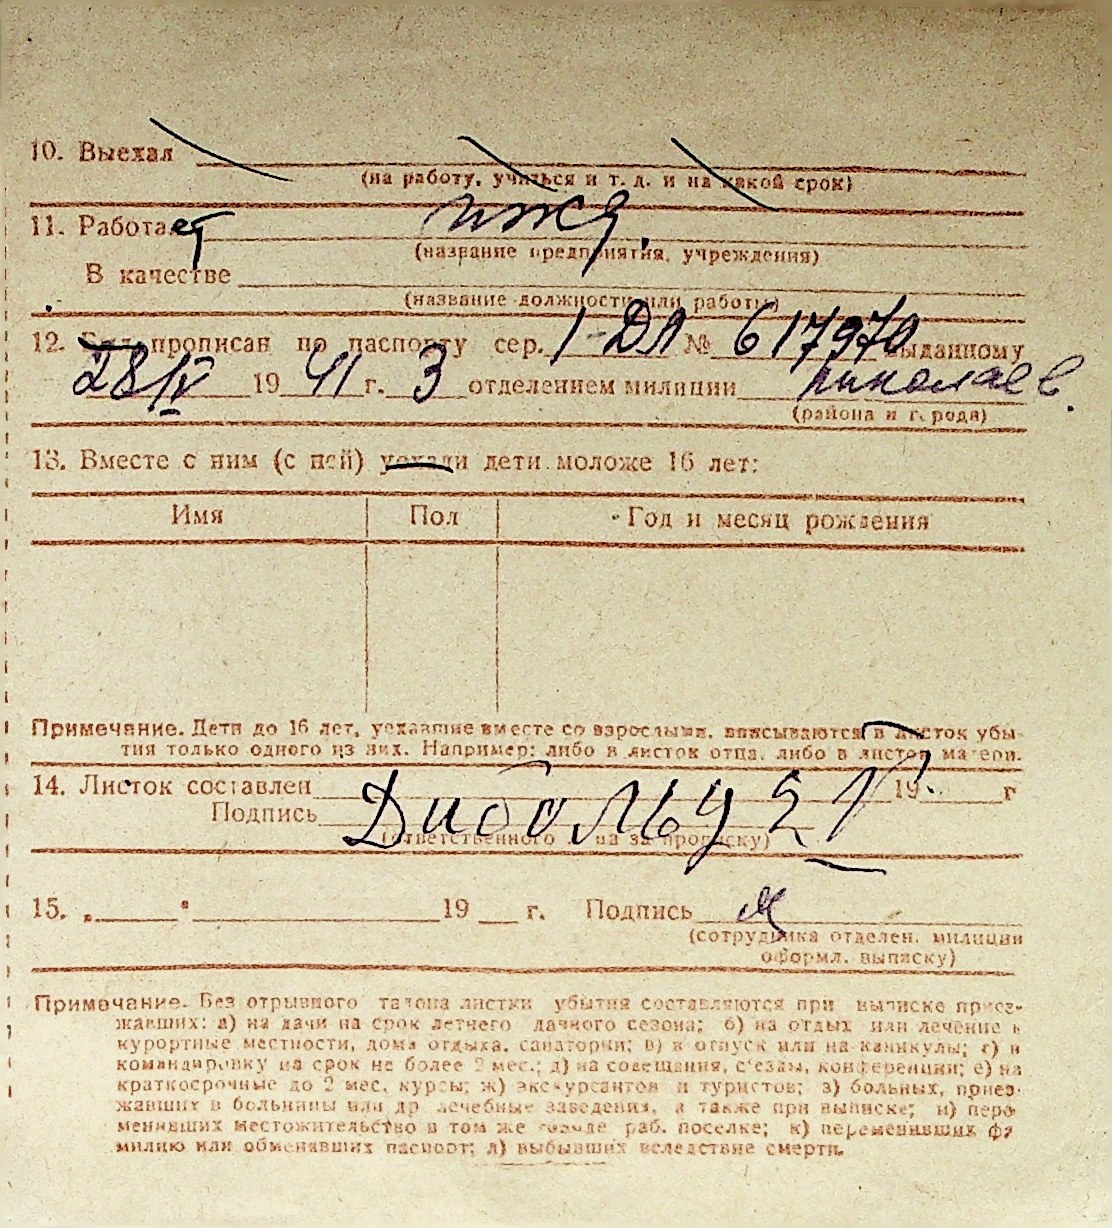 10. Выехал
(на работу, учиться и т. д. и на какой срок)
11. Работает ижд.
(название предприятия, учреждения)
В качестве
(название должности или работы)
12. Был прописан по паспорту сер. I-ДЛ № 617970 выданному
28/IV 1941 г. 3 отделением милиции Николаев.
(района и города)
13. Вместе с ним (с ней) уехали дети моложе 16 лет:
Имя Пол Год и месяц рождения
Примечание. Дети до 16 лет, уехавшие вместе со взрослыми, вписываются в листок убы-
тия только одного из них. Например: либо в листок отца, либо в листок матери.
14. Листок составлен 19 г
Подпись
(ответственного за прописку)
15. „ " 19 г. Подпись
(сотрудника отделен. милиции
оформл. выписку)
Примечание. Без отрывного талона листки убытия составляются при выписке приез-
жавших: а) на дачи на срок летнего дачного сезона; б) на отдых или лечение в
курортные местности, дома отдыха, санатории; в) в отпуск или на каникулы; г) в
командировку на срок не более 2 мес.; д) на совещания, с'езды, конференции; е) на
краткосрочные до 2 мес. курсы; ж) экскурсантов и туристов; з) больных, приез-
жавших в больницы или др лечебные заведения, а также при выписке; и) пере
менивших местожительство в том же городе раб. поселке; к) переменивших фа
милию или обменавших паспорт; л) выбывших вследствие смерти.